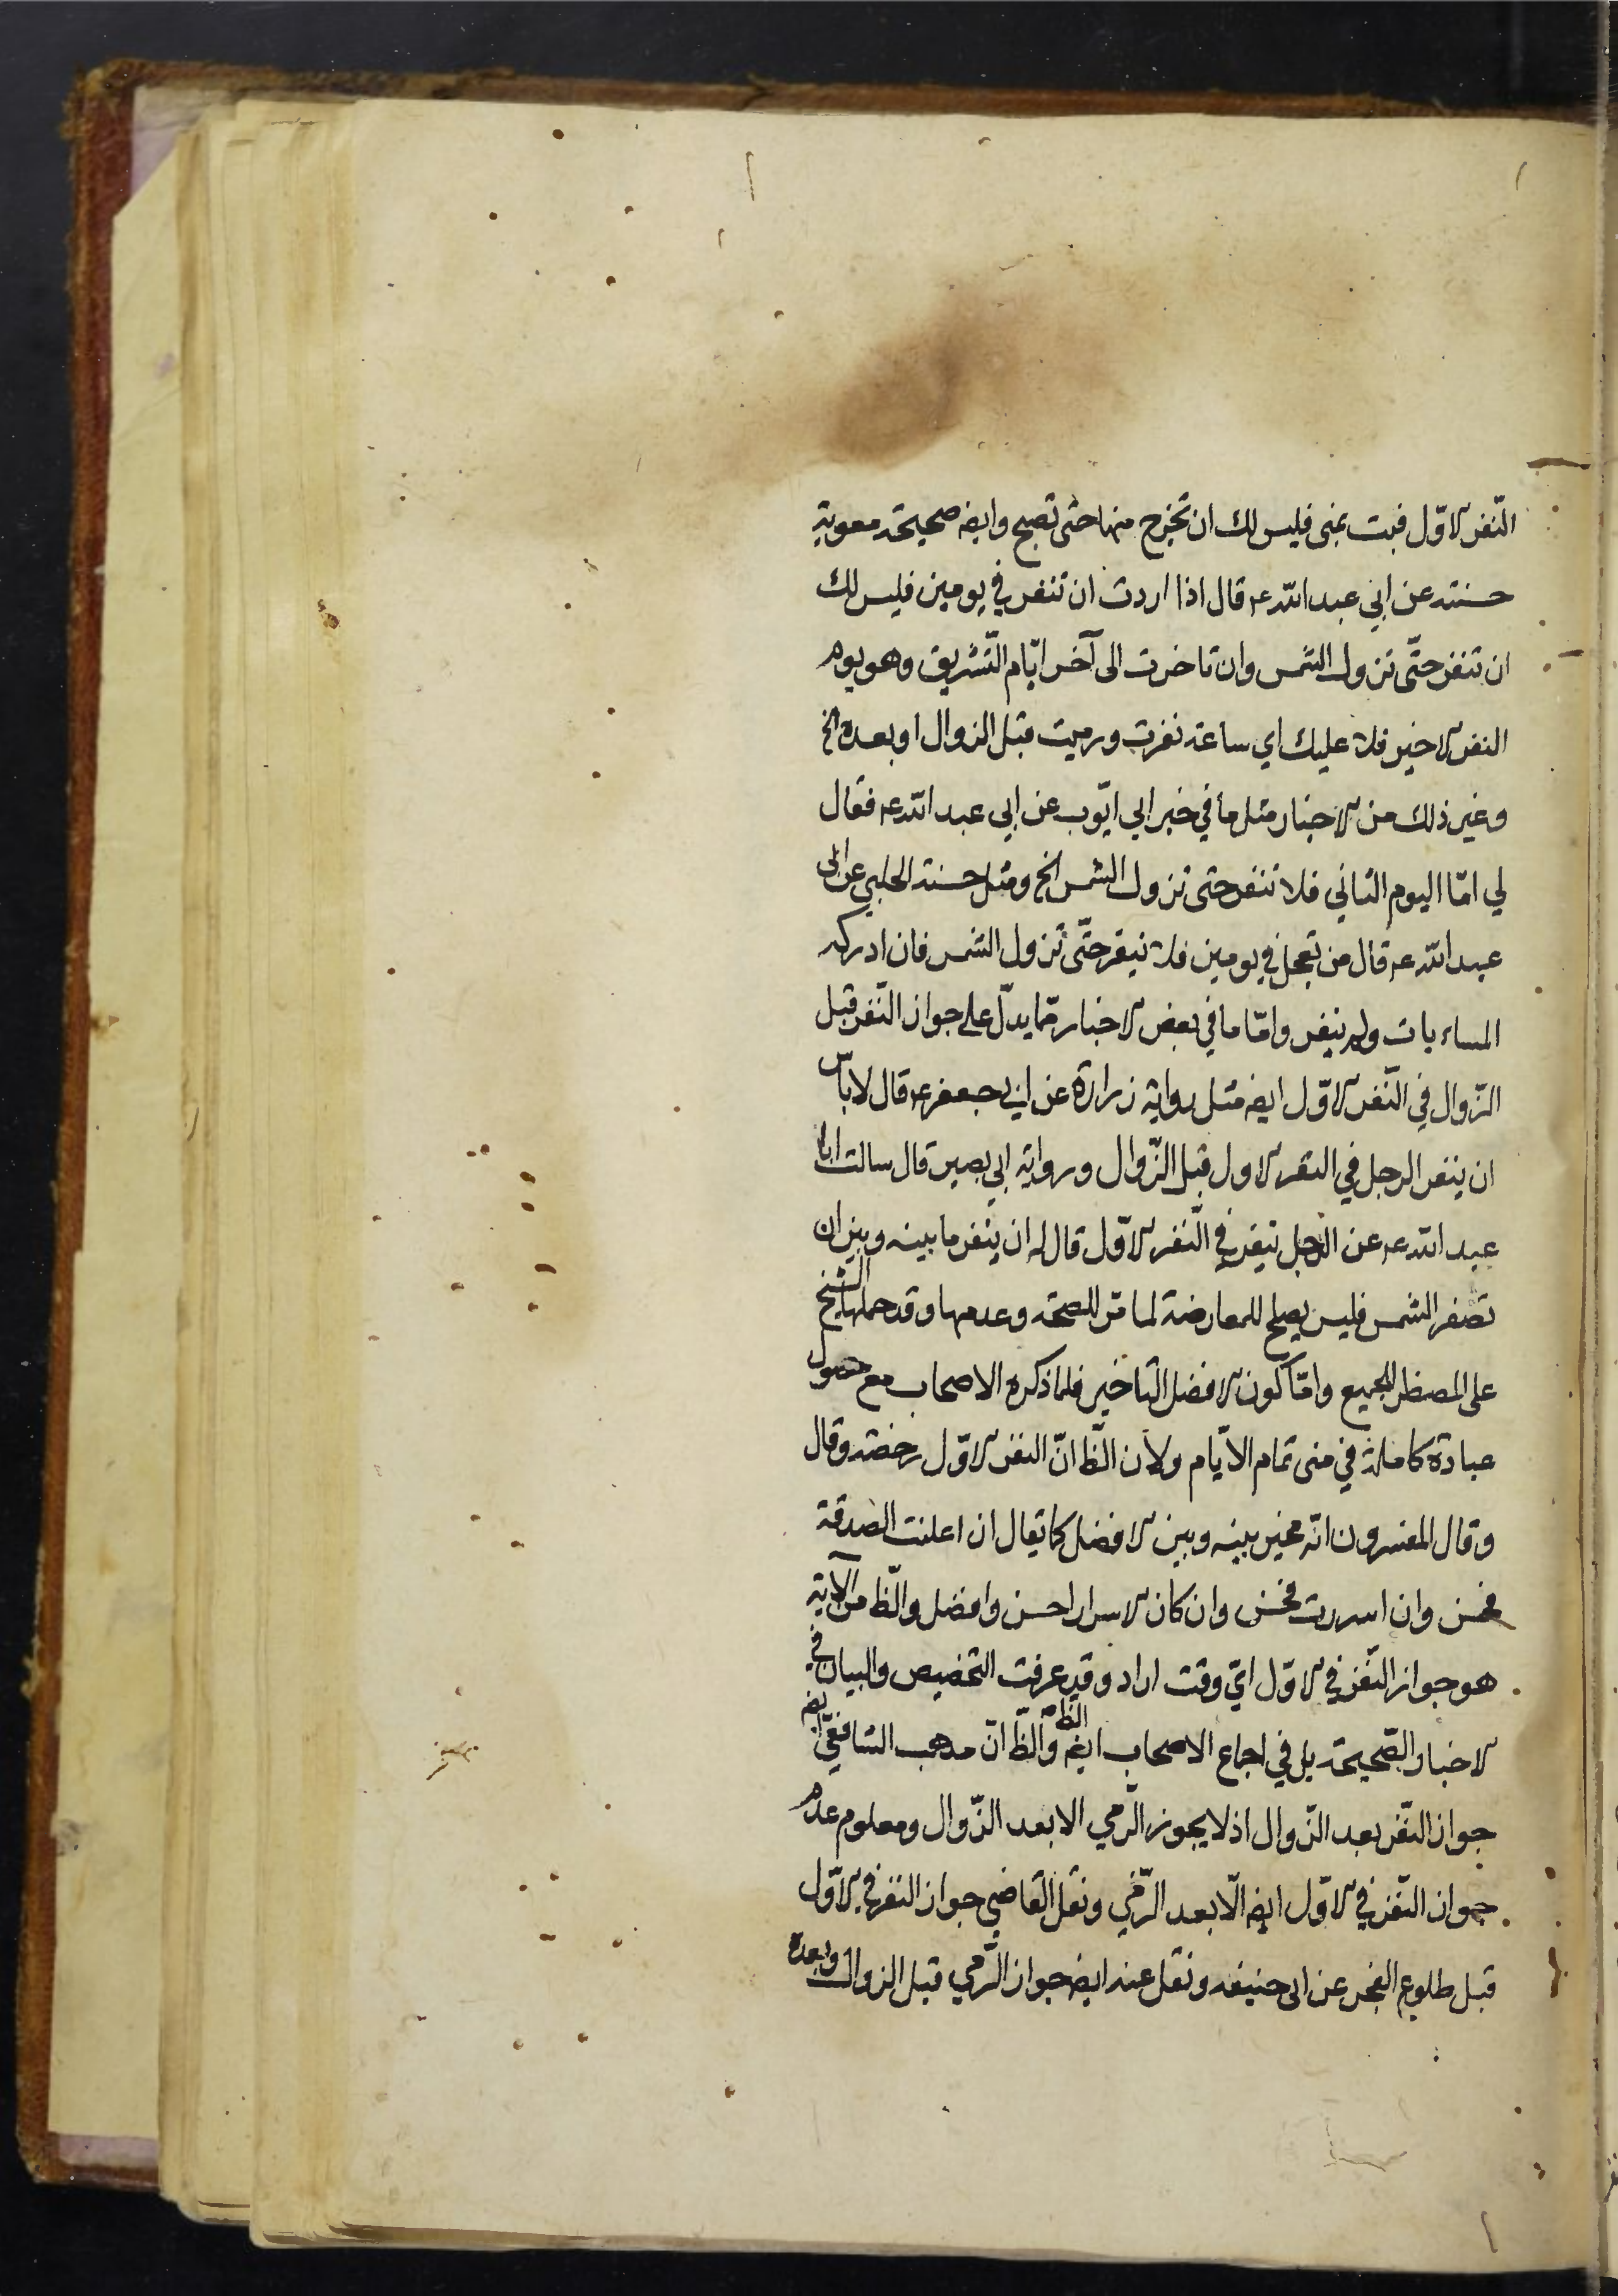 النّفر الاوّل فبت بمنى فليس لك ان تخرج منها حتى تصبح وايضه صحيحة معوية
حسنته عن ابي عبد الله ع قال اذا اردت ان تنفر في يومين فليس لك
ان تنفر حتّى تزول الشمس وان تاخرت الى آخر ايّام التّشريق وهو يوم
النفر الاخير فلا عليك اي ساعة نفرت ورميت قبل الزوال او بعده الخ
وغير ذلك من الاخبار مثل ما في خبر ابي ايّوب عن ابي عبد الله ع فقال
لي امّا اليوم الثاني فلا تنفر حتى تزول الشمس الخ ومثل حسنة الحلبي عن ابى
عبد الله ع قال من تعجل في يومين فلا ينفر حتّى تزول الشمس فان ادركه
المساء بات ولم ينفر وامّا ما في بعض الاخبار ممّا يدلّ على جواز النّفر قبل
الزّوال في النّفر الاوّل ايضه مثل رواية زرارة عن ابي جعفر ع قال لا باس
ان ينفر الرجل في النفر الاول قبل الزّوال ورواية ابي بصير قال سالت ابا
عبد الله ع عن الرجل ينفر في النّفر الاوّل قال له ان ينفر ما بينه وبين ان
تصفر الشمس فليس يصلح للمعارضة لما مرّ للصحة وعدمها وقد حملها الشيخ
على المضطر للجميع وامّا كون الافضل التاخير فلما ذكره الاصحاب مع حصول
عبادة كاملة في منى تمام الايّام ولان الظّ انّ النفر الاوّل رخصة وقال
وقال المفسرون انّه مخير بينه وبين الافضل كما يقال ان اعلنت الصدقة
فحسن وان اسررت فحسن وان كان الاسرار احسن وافضل والظّ من الآية
هو جواز النّفر في الاوّل ايّ وقت اراد وقد عرفت التخصيص والبيان في
الاخبار الصّحيحة بل في اجماع الاصحاب ايضه الظ والظّ انّ مذهب الشافعيّ ايضه
جواز النّفر بعد الزّوال اذ لا يجوز الرّمي الا بعد الزّوال ومعلوم عدم
جواز النّفر في الاوّل ايضه الّا بعد الرّمي ونقل القاضي جواز النفر في الاوّل
قبل طلوع الفجر عن ابى حنيفه ونقل عنه ايضه جواز الرّمي قبل الزوال وبعده